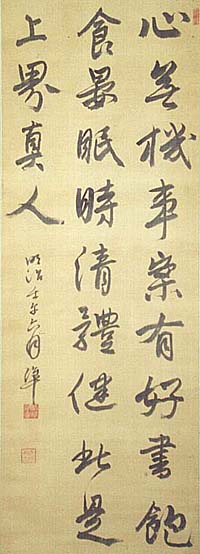 心無機事案有好書飽
食晏眠時清體健此是
上界真人
明治壬午六月準